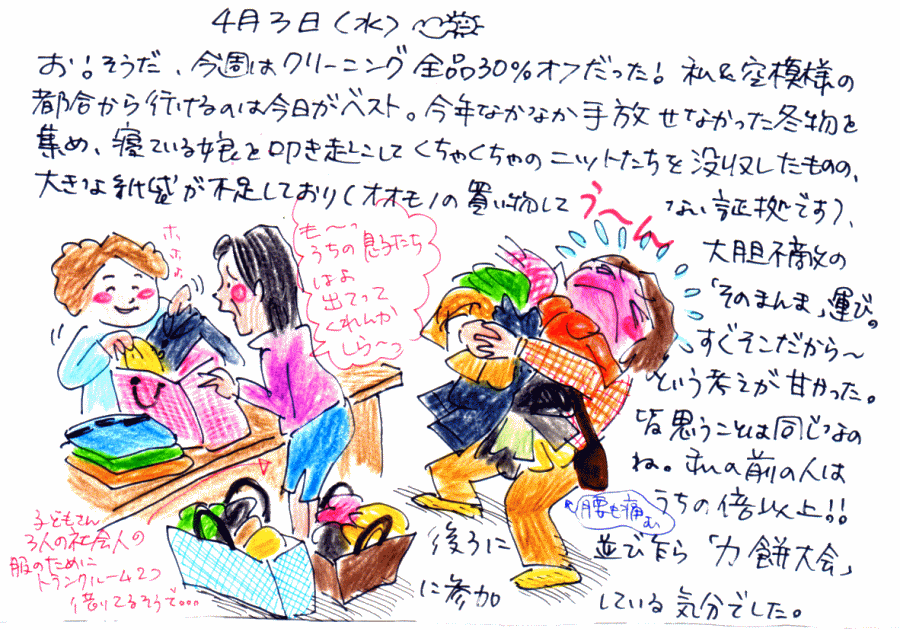 4月3日(水)
お!そうだ、今週はクリーニング全品30%オフだった! 私&空模様の
都合から行けるのは今日がベスト。今年なかなか手放せなかった冬物を
集め、寝ている娘を叩き起こしてくちゃくちゃのニットたちを没収したものの、
大きな紙袋が不足しており(オオモノの買い物して
ない証拠です)、
大胆不敵の
「そのまんま」運び。
すぐそこだから〜
という考えが甘かった。
皆思うことは同じなの
ね。私の前の人は
うちの倍以上!!
後ろに
並びながら「力餅大会」
に参加
している気分でした。
う〜ん
ホホホ
も〜っ
うちの息子たち
はよ
出てって
くれんか
しら〜っ
腰も痛む
子どもさん
3人の社会人の
服のために
トランクルーム2つ
借りてるそうで…